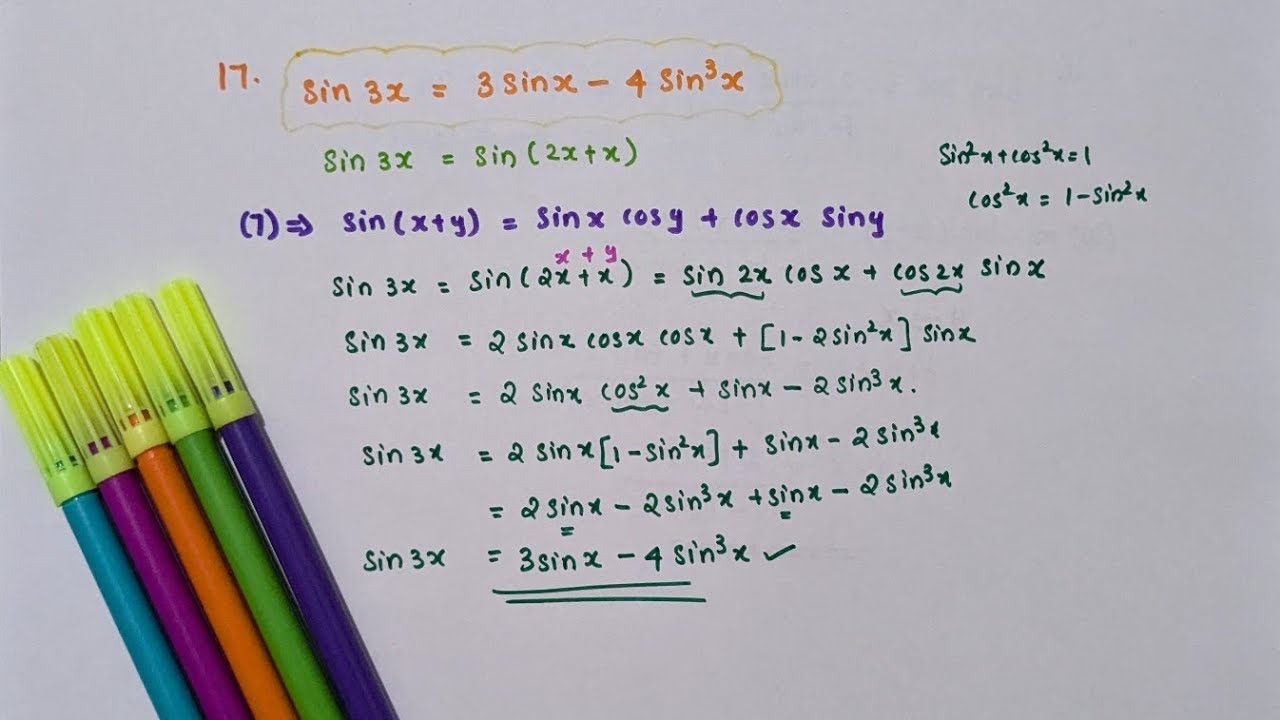 17. sin 3x = 3 sinx - 4 sin³x
sin 3x = sin (2x+x)
sin²x + cos²x = 1
cos²x = 1 - sin²x
(7) ⇒ sin(x+y) = sinx cosy + cosx siny
x + y
sin 3x = sin(2x+x) = sin 2x cos x + cos2x sinx
sin 3x = 2 sinx cosx cosx + [1 - 2sin²x] sinx
sin 3x = 2 sinx cos²x + sinx - 2 sin³x.
sin 3x = 2 sinx[1-sin²x] + sinx - 2 sin³x
= 2 sinx - 2sin³x + sinx - 2 sin³x
sin 3x = 3sinx - 4 sin³x ✓